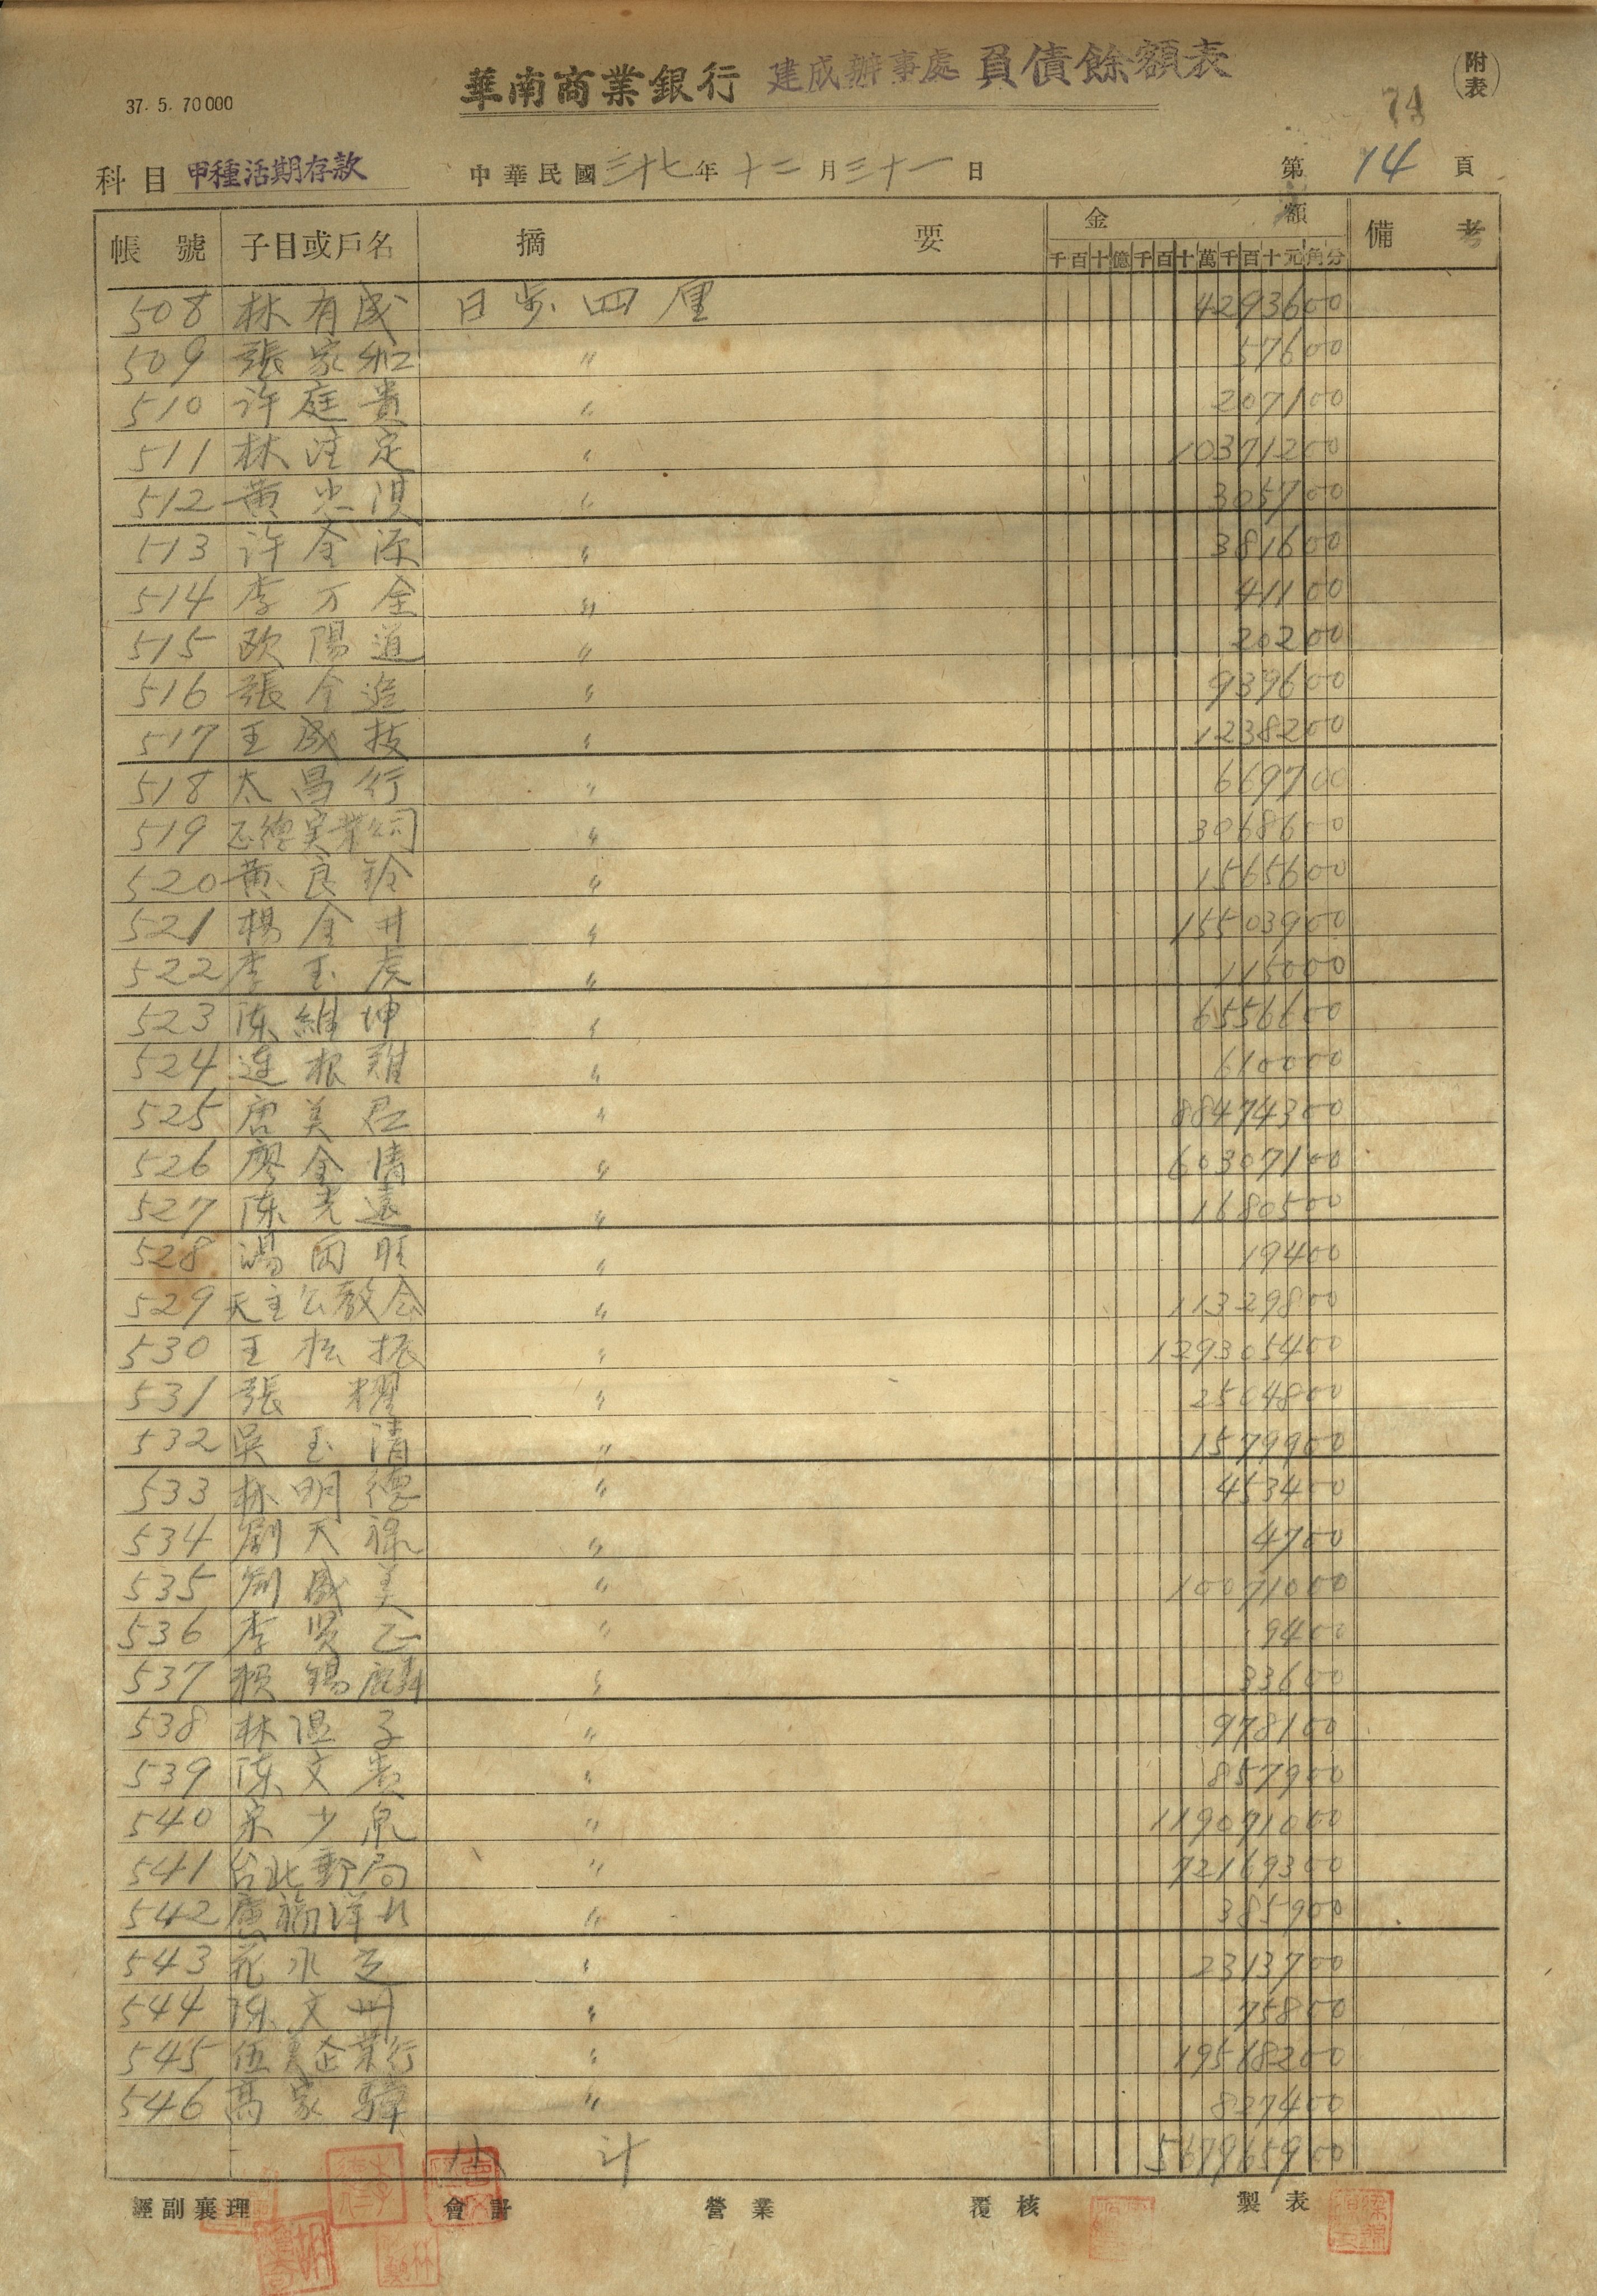 37. 5. 70000
華南商業銀行 建成辦事處 負債餘額表
(附表)
74
科目 甲種活期存款 中華民國三十七年十二月三十一日 第14頁
帳號 子目或戶名 摘要 金額 備考
千百十億千百十萬千百十元角分
508 林有成 日歩四厘 4293600
509 張家和 〃 57600
510 許庭貴 〃 207100
511 林注定 〃 10371200
512 黃忠淇 〃 305700
513 許金源 〃 381600
514 李万全 〃 41100
515 欧陽道 〃 20200
516 張金造 〃 939600
517 王成技 〃 1238200
518 太昌行 〃 669700
519 正德実業公司 〃 3068600
520 黃良鈴 〃 1565600
521 楊金井 〃 15503900
522 李玉虎 〃 115000
523 陈維坤 〃 6556600
524 連根 〃 610000
525 唐美君 〃 88474300
526 廖金清 〃 60307100
527 陈光遠 〃 1680500
528 旺 〃 19400
529 天主公教会 〃 11329800
530 王松振 〃 129305400
531 張耀 〃 2504800
532 吳玉清 〃 1579900
533 林明德 〃 453400
534 劉天祿 〃 4700
535 劉成美 〃 10071000
536 李賢乙 〃 9400
537 賴錫麟 〃 33600
538 林温子 〃 978100
539 陈文貴 〃 857900
540 宋少泉 〃 119091000
541 台北郵局 〃 72169300
542 廣福洋行 〃 385900
543 花水 〃 2313700
544 陈文州 〃 75800
545 伍美企業行 〃 19568200
546 高家驊 〃 827400
小計 567965900
經副襄理 會計 營業 覆核 製表